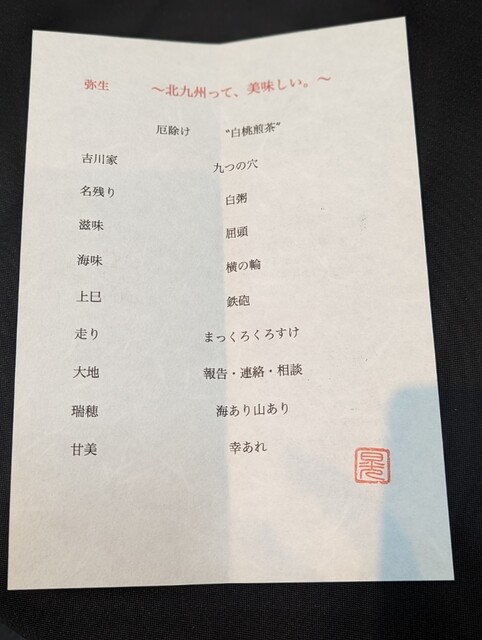 弥生 ～北九州って、美味しい。～
厄除け “白桃煎茶”
吉川家 九つの穴
名残り 白粥
滋味 屈頭
海味 横の輪
上巳 鉄砲
走り まっくろくろすけ
大地 報告・連絡・相談
瑞穂 海あり山あり
甘美 幸あれ